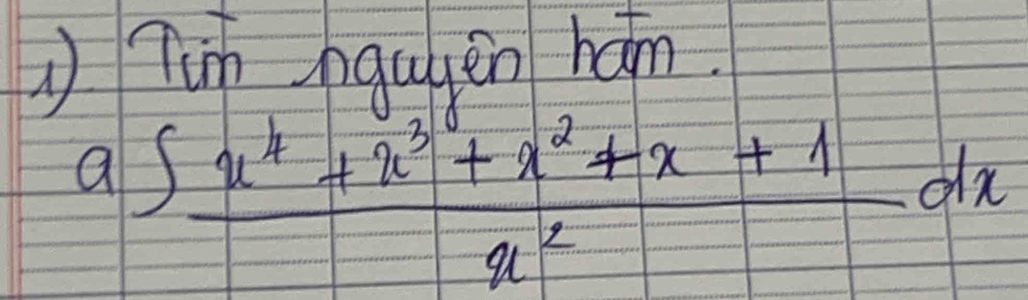 1) Tìm nguyên hàm.
a ∫ (x⁴ + x³ + x² + x + 1) / x² dx